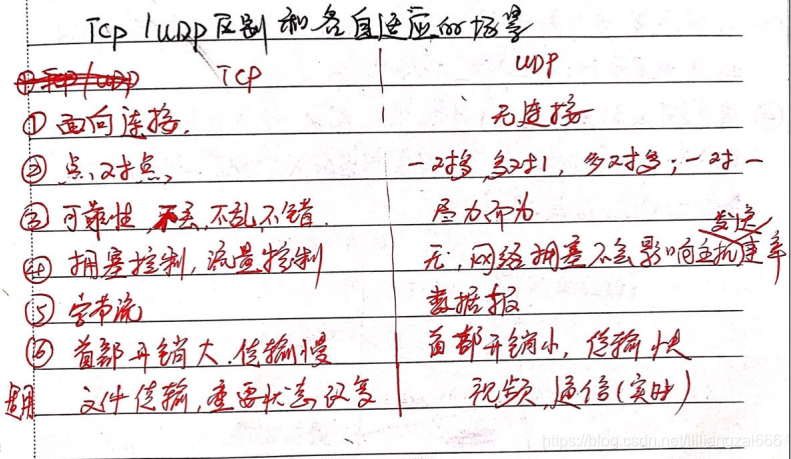 TCP/UDP区别和各自适应的场景
TCP UDP
① 面向连接. 无连接
② 点对点, 一对多,多对1,多对多,一对一
③ 可靠性,不丢,不乱,不错. 尽力而为
④ 拥塞控制,流量控制 无,网络拥塞不会影响主机发送速率
⑤ 字节流 数据报
⑥ 首部开销大,传输慢 首部开销小,传输快
适用 文件传输,重要状态 视频,通信(实时)
https://blog.csdn.net/lilliangzai666